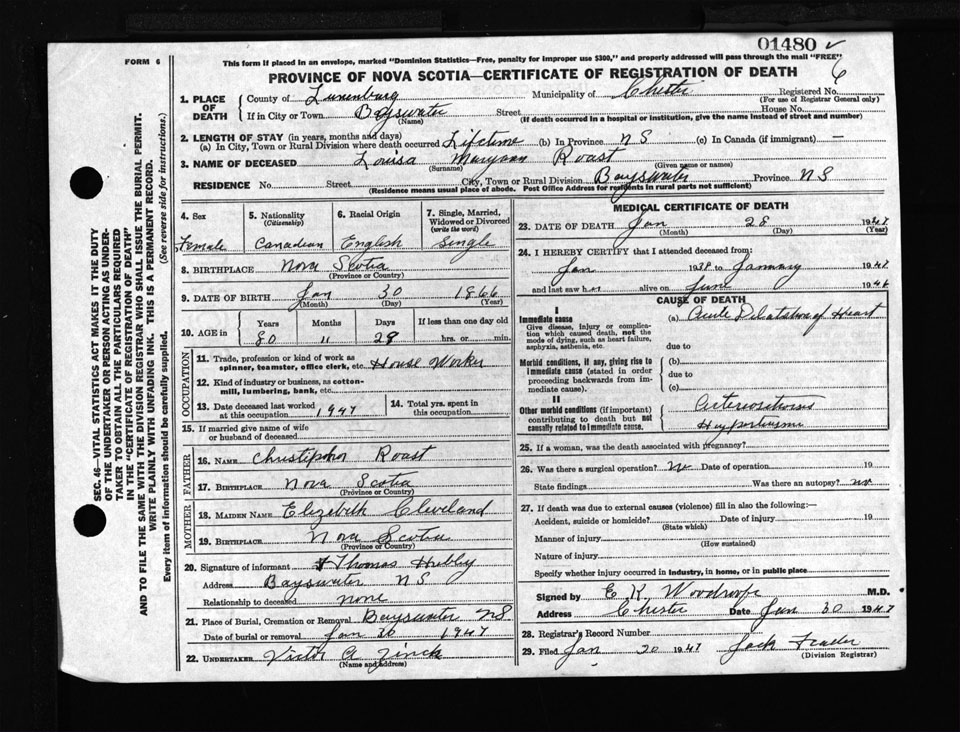 01480 ✓
FORM 6
This form if placed in an envelope, marked "Dominion Statistics—Free, penalty for improper use $300," and properly addressed will pass through the mail "FREE"
PROVINCE OF NOVA SCOTIA—CERTIFICATE OF REGISTRATION OF DEATH
1. PLACE OF DEATH
County of Lunenburg Municipality of Chester Registered No. 6
(For use of Registrar General only)
If in City or Town Bayswater Street House No.
(Name) (If death occurred in a hospital or institution, give the name instead of street and number)
2. LENGTH OF STAY (in years, months and days)
(a) In City, Town or Rural Division where death occurred Lifetime (b) In Province NS (c) In Canada (if immigrant) —
3. NAME OF DECEASED Louisa Maryann Roast
(Surname) (Given name or names)
RESIDENCE No. Street City, Town or Rural Division Bayswater Province NS
(Residence means usual place of abode. Post Office Address for residents in rural parts not sufficient)
4. Sex 5. Nationality (Citizenship) 6. Racial Origin 7. Single, Married, Widowed or Divorced (write the word)
Female Canadian English Single
8. BIRTHPLACE Nova Scotia
(Province or Country)
9. DATE OF BIRTH Jan 30 1866
(Month) (Day) (Year)
10. AGE in Years Months Days If less than one day old
80 11 28 hrs. or min.
OCCUPATION
11. Trade, profession or kind of work as spinner, teamster, office clerk, etc. House Worker
12. Kind of industry or business, as cotton-mill, lumbering, bank, etc.
13. Date deceased last worked at this occupation 1947 14. Total yrs. spent in this occupation
15. If married give name of wife or husband of deceased
FATHER
16. NAME Christipher Roast
17. BIRTHPLACE Nova Scotia
(Province or Country)
MOTHER
18. MAIDEN NAME Elizabeth Cleveland
19. BIRTHPLACE Nova Scotia
(Province or Country)
20. Signature of informant Thomas
Address Bayswater NS
Relationship to deceased none
21. Place of Burial, Cremation or Removal Bayswater NS
Date of burial or removal Jan 30 1947
22. UNDERTAKER Victor A Zinck
(Name and address)
MEDICAL CERTIFICATE OF DEATH
23. DATE OF DEATH Jan 28 1947
(Month) (Day) (Year)
24. I HEREBY CERTIFY that I attended deceased from:
Jan 1938 to January 1947
and last saw h er alive on June 1946
CAUSE OF DEATH
I
Immediate cause (a) Acute Dilatation of Heart
Give disease, injury or complication which caused death, not the mode of dying, such as heart failure, asphyxia, asthenia, etc.
due to
Morbid conditions, if any, giving rise to immediate cause (stated in order proceeding backwards from immediate cause).
(b)
due to
(c)
II
Other morbid conditions (if important) contributing to death but not causally related to immediate cause.
25. If a woman, was the death associated with pregnancy?
26. Was there a surgical operation? No Date of operation 19
State findings Was there an autopsy? no
27. If death was due to external causes (violence) fill in also the following:—
Accident, suicide or homicide? Date of injury 19
(State which)
Manner of injury
(How sustained)
Nature of injury
Specify whether injury occurred in industry, in home, or in public place
Signed by E. K. M.D.
Address Chester Date Jan 30 1947
28. Registrar's Record Number
29. Filed Jan 30 1947 Jack
(Division Registrar)
SEC. 46—VITAL STATISTICS ACT MAKES IT THE DUTY
OF THE UNDERTAKER OR PERSON ACTING AS UNDERTAKER
TO OBTAIN ALL THE PARTICULARS REQUIRED
IN THE "CERTIFICATE OF REGISTRATION OF DEATH"
AND TO FILE THE SAME WITH THE DIVISION REGISTRAR WHO SHALL ISSUE THE BURIAL PERMIT.
WRITE PLAINLY WITH UNFADING INK. THIS IS A PERMANENT RECORD.
Every item of information should be carefully supplied. (See reverse side for instructions.)